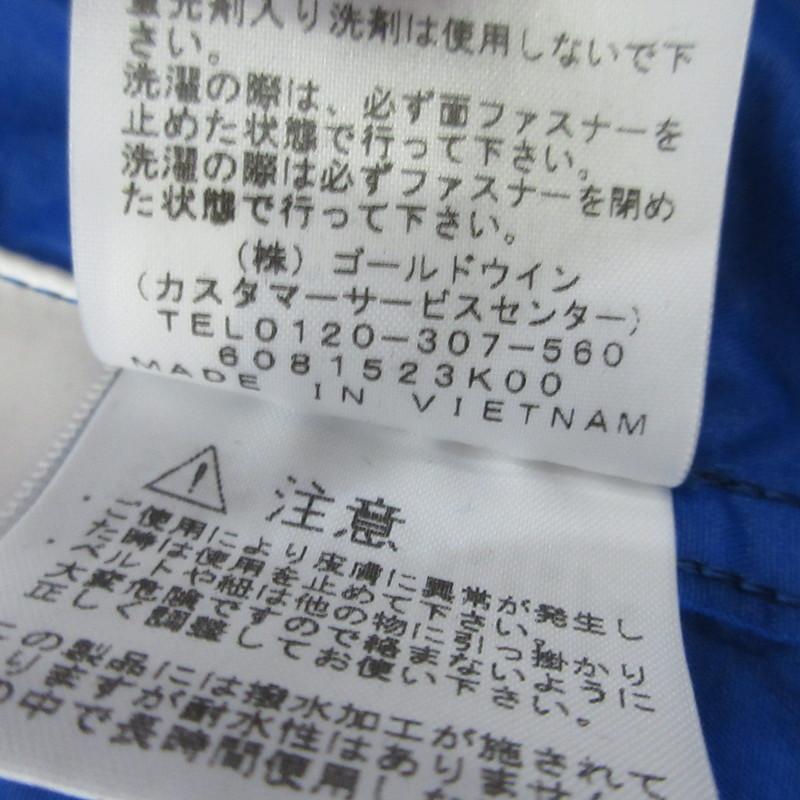 光剤入り洗剤は使用しないで下
さい。
洗濯の際は、必ず面ファスナーを
止めた状態で行って下さい。
洗濯の際は必ずファスナーを閉め
た状態で行って下さい。
（株）ゴールドウイン
（カスタマーサービスセンター）
TEL0120-307-560
6081523K00
MADE IN VIETNAM
注意
・ご使用により皮膚に異常が発生し
た時は使用を止めて下さい。
・ベルトや紐は他の物に引っ掛かり
大変危険ですので絡まないように
正しく調整してお使い下さい。
この製品には撥水加工が施されて
りますが耐水性はありません
の中で長時間使用し